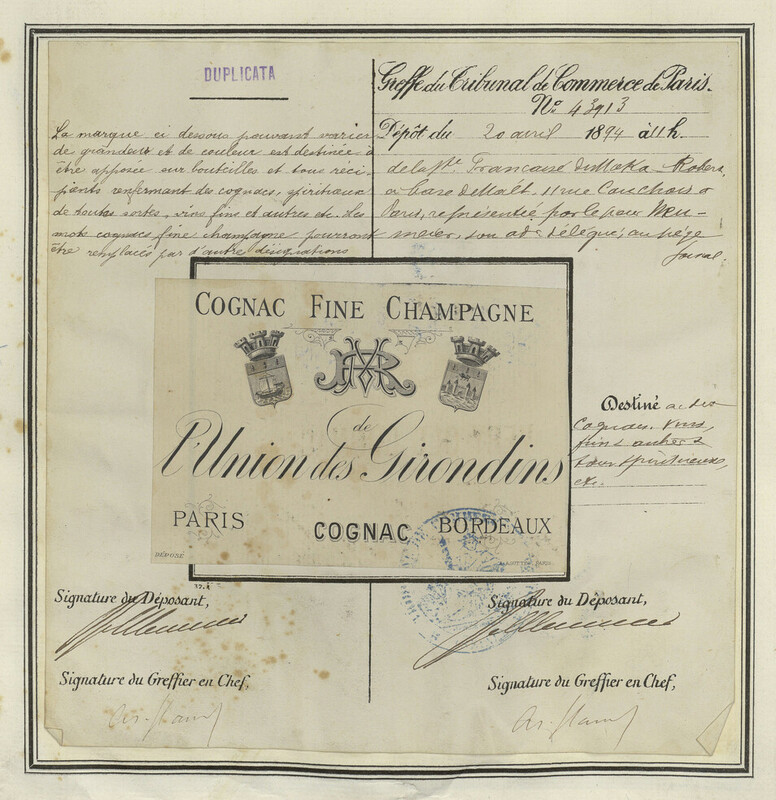 DUPLICATA
La marque ci dessous pouvant varier
de grandeur et de couleur est destinée à
être apposée sur bouteilles et tous réci-
pients renfermant des cognacs, spiritueux
de toutes sortes, vins fins et autres etc. Les
mots cognacs fine champagne pourront
être remplacés par d'autre désignations
Greffe du Tribunal de Commerce de Paris.
No. 43913
Dépôt du 20 avril 1894 à 11h.
de la Sté. Francaise du Moka-
à base de Malt. 11 rue Cauchois à
Paris, représentée par le sieur Meu-
nier, son adr délégué, au siège
social
COGNAC FINE CHAMPAGNE
de
l'Union des Girondins
PARIS COGNAC BORDEAUX
DÉPOSÉ
PARIS
Destiné à des
Cognacs, vins
fins autres
tous spiritueux,
etc.
Signature du Déposant,
Signature du Greffier en Chef,
Signature du Déposant,
Signature du Greffier en Chef,